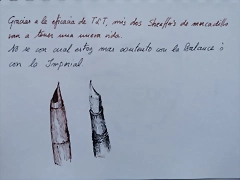 Gracias a la eficacia de T2T, mis dos Sheaffer's de mercadillo
van a tener una nueva vida.
No se con cual estoy mas contento con la Balance o
con la Imperial